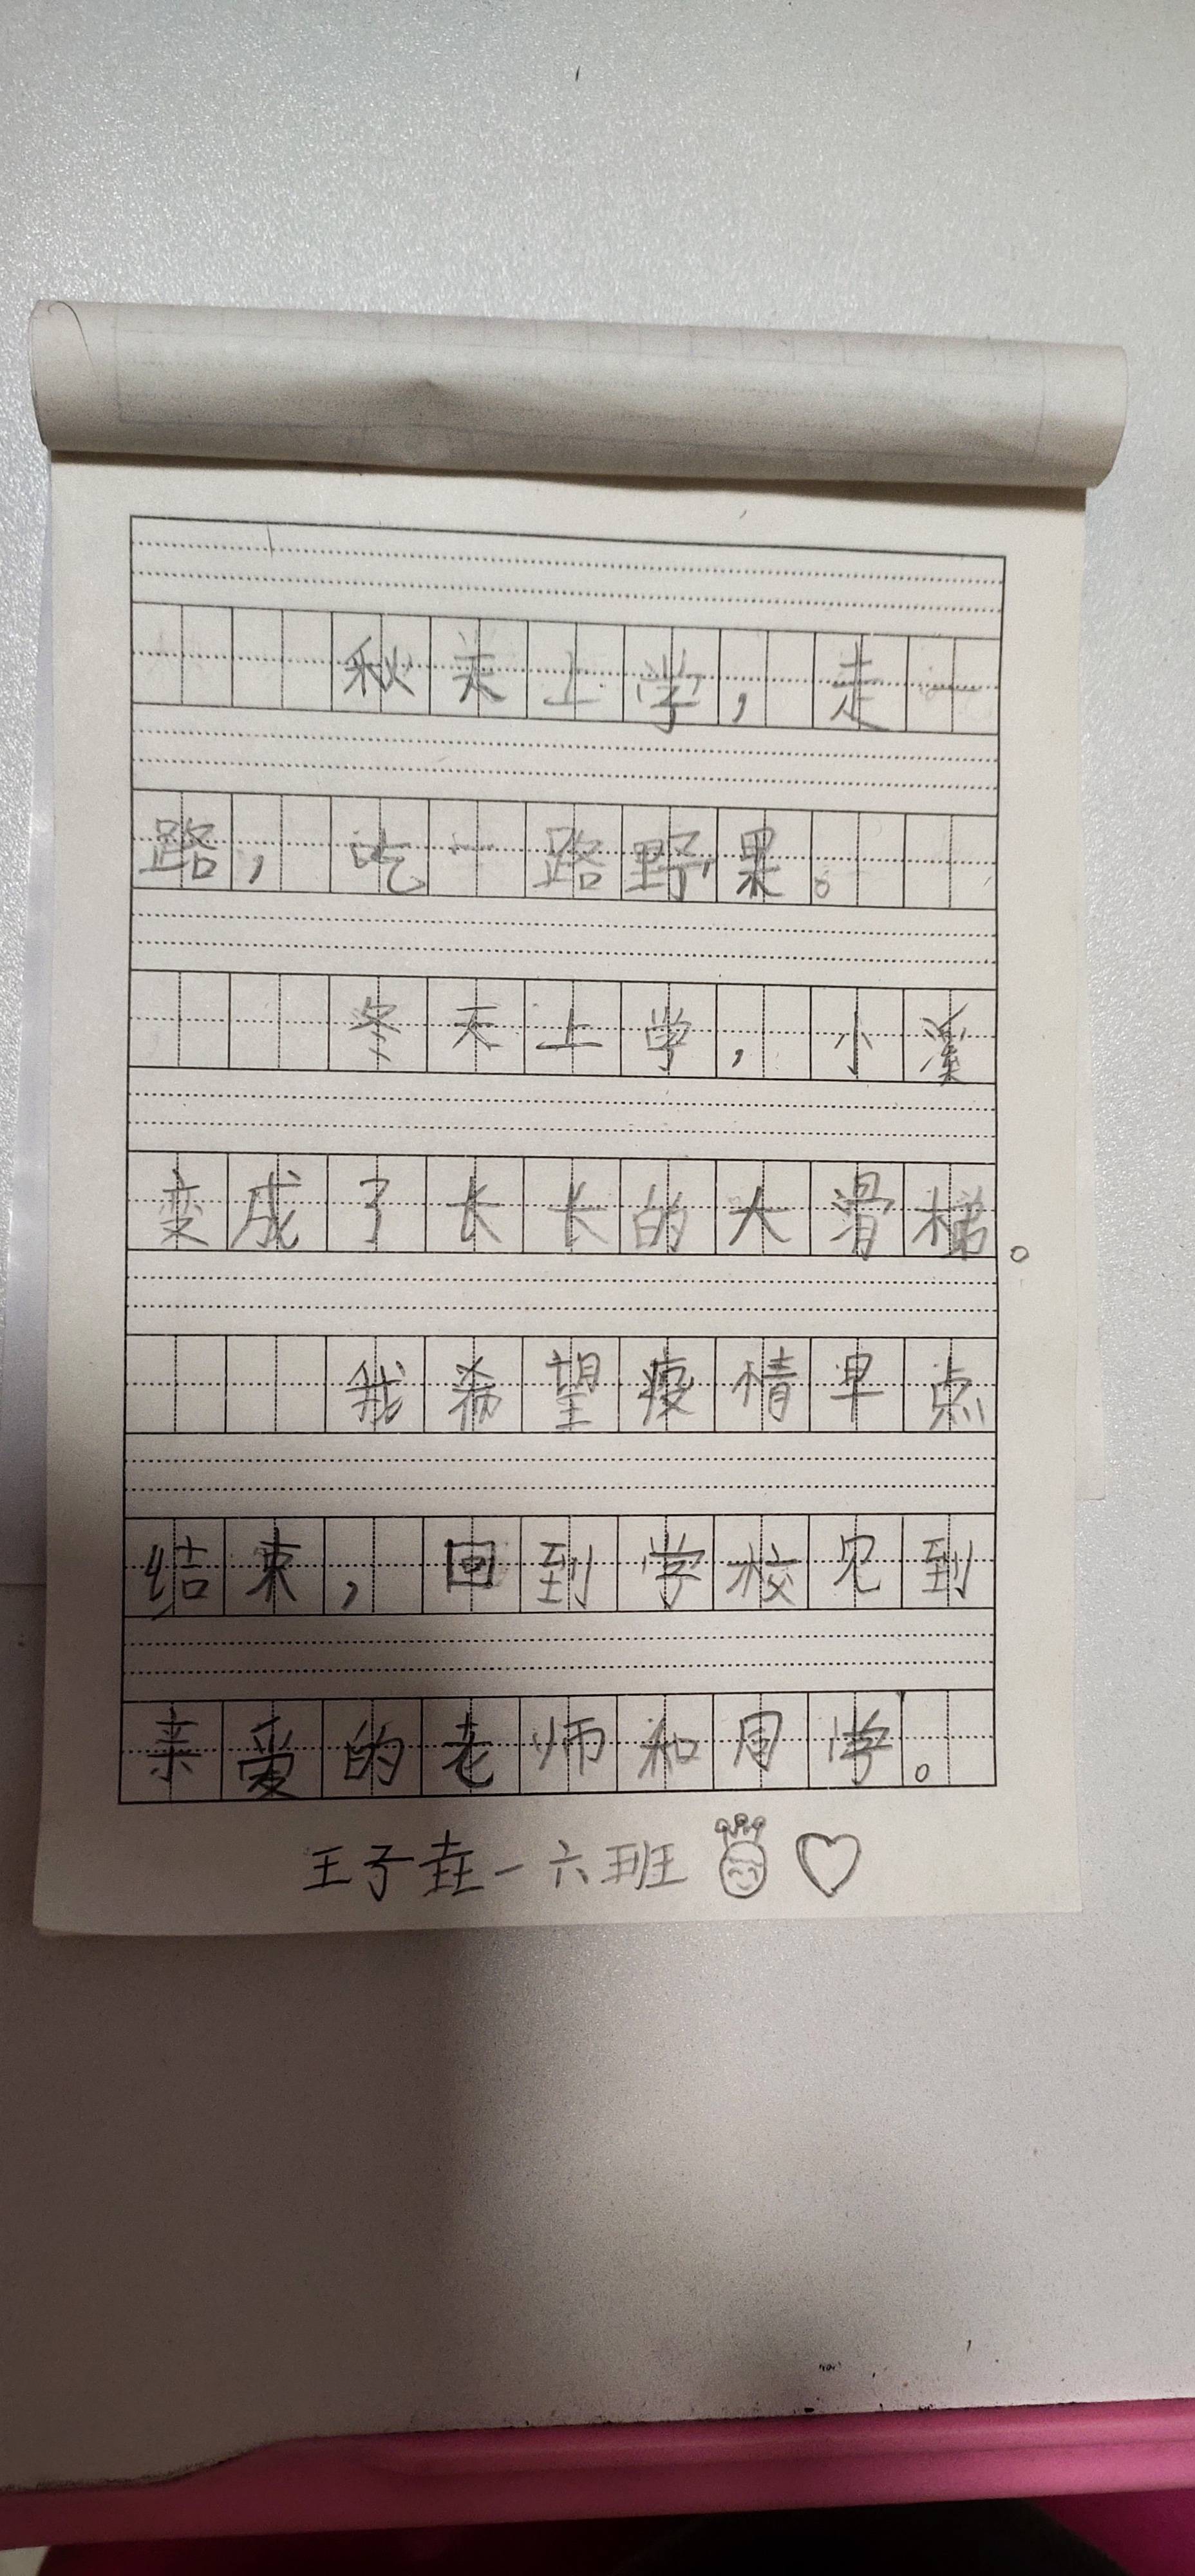 秋天上学，走一
路，吃一路野果。
冬天上学，小溪
变成了长长的大滑梯。
我希望疫情早点
结束，回到学校见到
亲爱的老师和同学。
王子垚一六班